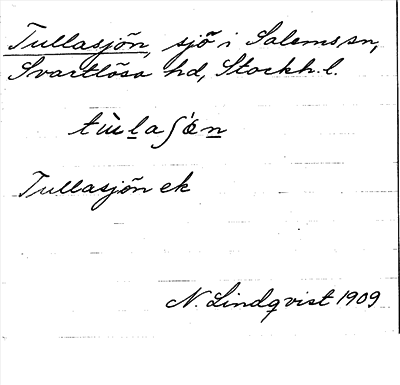 Tullasjön, sjö i Salems sn,
Svartlösa hd, Stockh. l.
tùlaʃǿn
Tullasjön ek
N. Lindqvist 1909